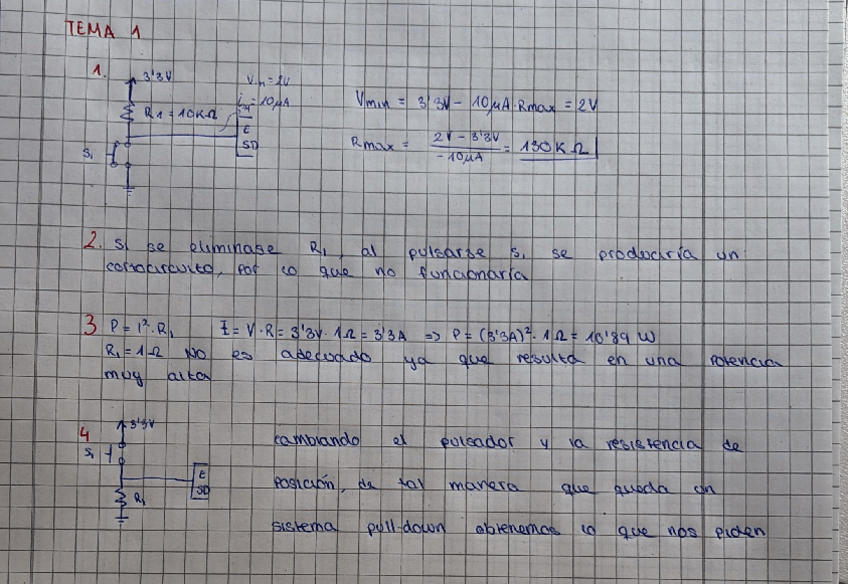 TEMA 1
1.
3'3V
Vin = 2V
iin = 10μA
R1 = 10KΩ
E
SD
S1
Vmin = 3'3V - 10μA·Rmax = 2V
Rmax = 2V - 3'3V / -10μA = 130KΩ
2. Si se eliminase R1, al pulsarse S1 se produciría un
cortocircuito, por lo que no funcionaría
3 P = I²·R1 I = V·R = 3'3V·1Ω = 3'3A => P = (3'3A)²·1Ω = 10'89 W
R1 = 1Ω NO es adecuado ya que resulta en una potencia
muy alta
4
3'3V
S1
E
SD
R1
cambiando el pulsador y la resistencia de
posición, de tal manera que queda un
sistema pull-down obtenemos lo que nos piden